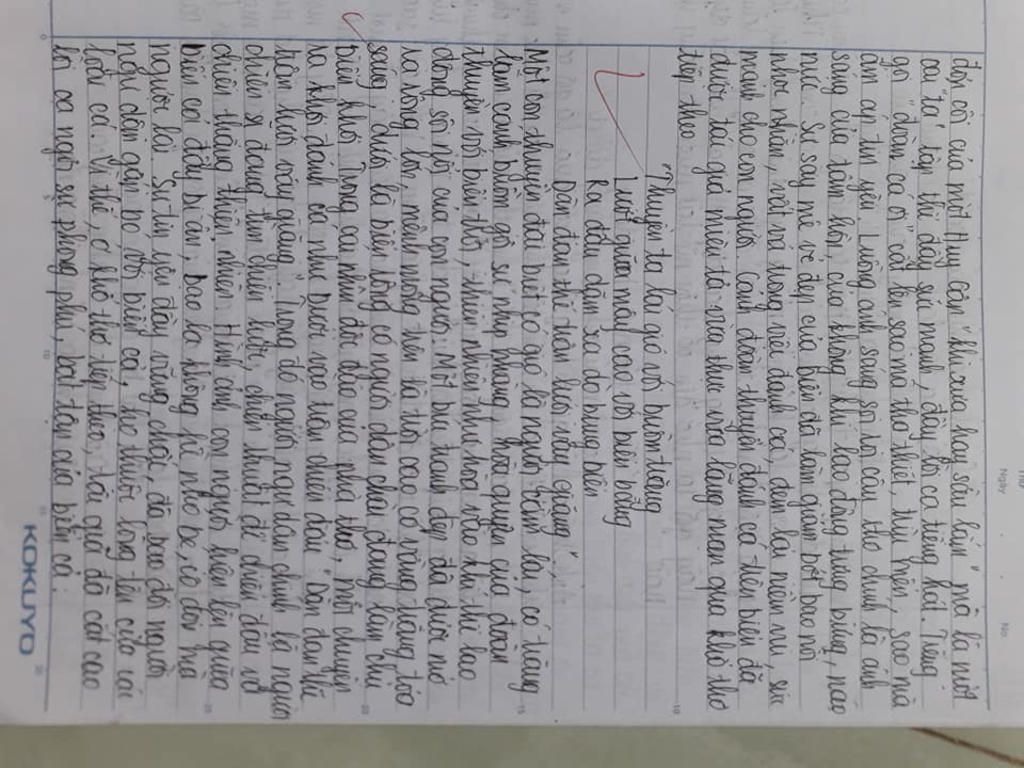 Thứ
Ngày
No.
đơn côi của một Huy Cận "khi xưa hay sầu lắm" mà là một
cái "ta" tập thể đầy sức mạnh, đầy lời ca tiếng hát. Tiếng
gõ "đoàn cá ơi" cất lên sao mà tha thiết, trìu mến, sao mà
ấm áp tin yêu. Luồng ánh sáng soi rọi câu thơ chính là ánh
sáng của tâm hồn, của không khí lao động tưng bừng, náo
nức. Sự say mê vẻ đẹp của biển đã làm giảm bớt bao nỗi
nhọc nhằn, vất vả trong việc đánh cá, đem lại niềm vui sức
mạnh cho con người. Cảnh đoàn thuyền đánh cá trên biển đã
được tác giả miêu tả vừa thực vừa lãng mạn qua khổ thơ
tiếp theo
"Thuyền ta lái gió với buồm trăng
Lướt giữa mây cao với biển bằng
Ra đậu dặm xa dò bụng biển
Dàn đan thế trận lưới vây giăng".
Một con thuyền đặc biệt có gió là người cầm lái, có trăng
làm cánh buồm gợi sự nhịp nhàng, hòa quyện của đoàn
thuyền với biển trời, thiên nhiên như hòa vào khí thế lao
động sôi nổi của con người. Một bức tranh đẹp đã được mở
ra rộng lớn, mênh mông trên là trời cao có vầng trăng tỏa
sáng, dưới là biển rộng có người dân chài đang làm chủ
biển khơi. Trong cái nhìn độc đáo của nhà thơ, mỗi chuyến
ra khơi đánh cá như bước vào trận chiến đấu "Dàn đan thế
trận lưới vây giăng". Trong đó người ngư dân chính là người
chiến sĩ đang tìm chiến lược, chiến thuật để chiến đấu và
chiến thắng thiên nhiên. Hình ảnh con người hiện lên giữa
biển cả đầy bí ẩn, bao la không hề nhỏ bé, cô đơn mà
ngược lại. Sự tin yêu đầy vững chắc, đã bao đời người
nối đêm gắn bó với biển cả, họ thuộc lòng tên của các
loài cá. Vì thế, ở khổ thơ tiếp theo, tác giả đã cất cao
lời ca ngợi sự phong phú, bất tận của biển cả.
KOKUYO